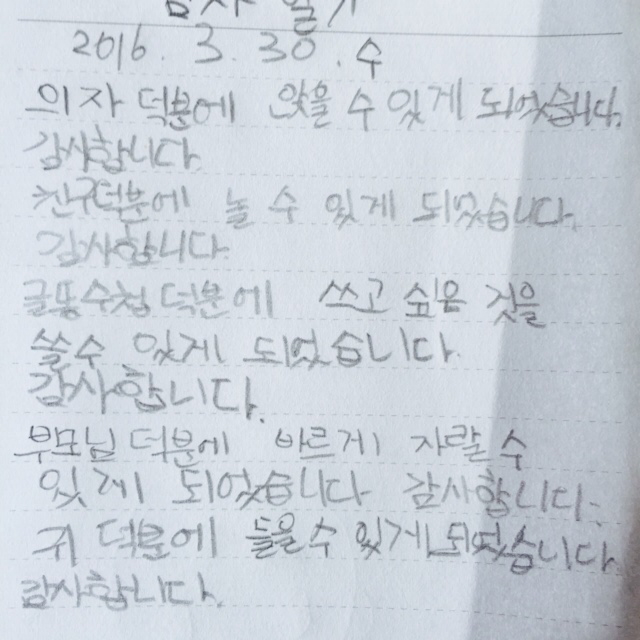 2016. 3. 30. 수
의자 덕분에 앉을 수 있게 되었습니다.
감사합니다.
친구덕분에 놀 수 있게 되었습니다.
감사합니다.
글똥수첩 덕분에 쓰고 싶은 것을
쓸수 있게 되었습니다.
감사합니다.
부모님 덕분에 바르게 자랄 수
있게 되었습니다 감사합니다.
귀 덕분에 들을수 있게되었습니다.
감사합니다.